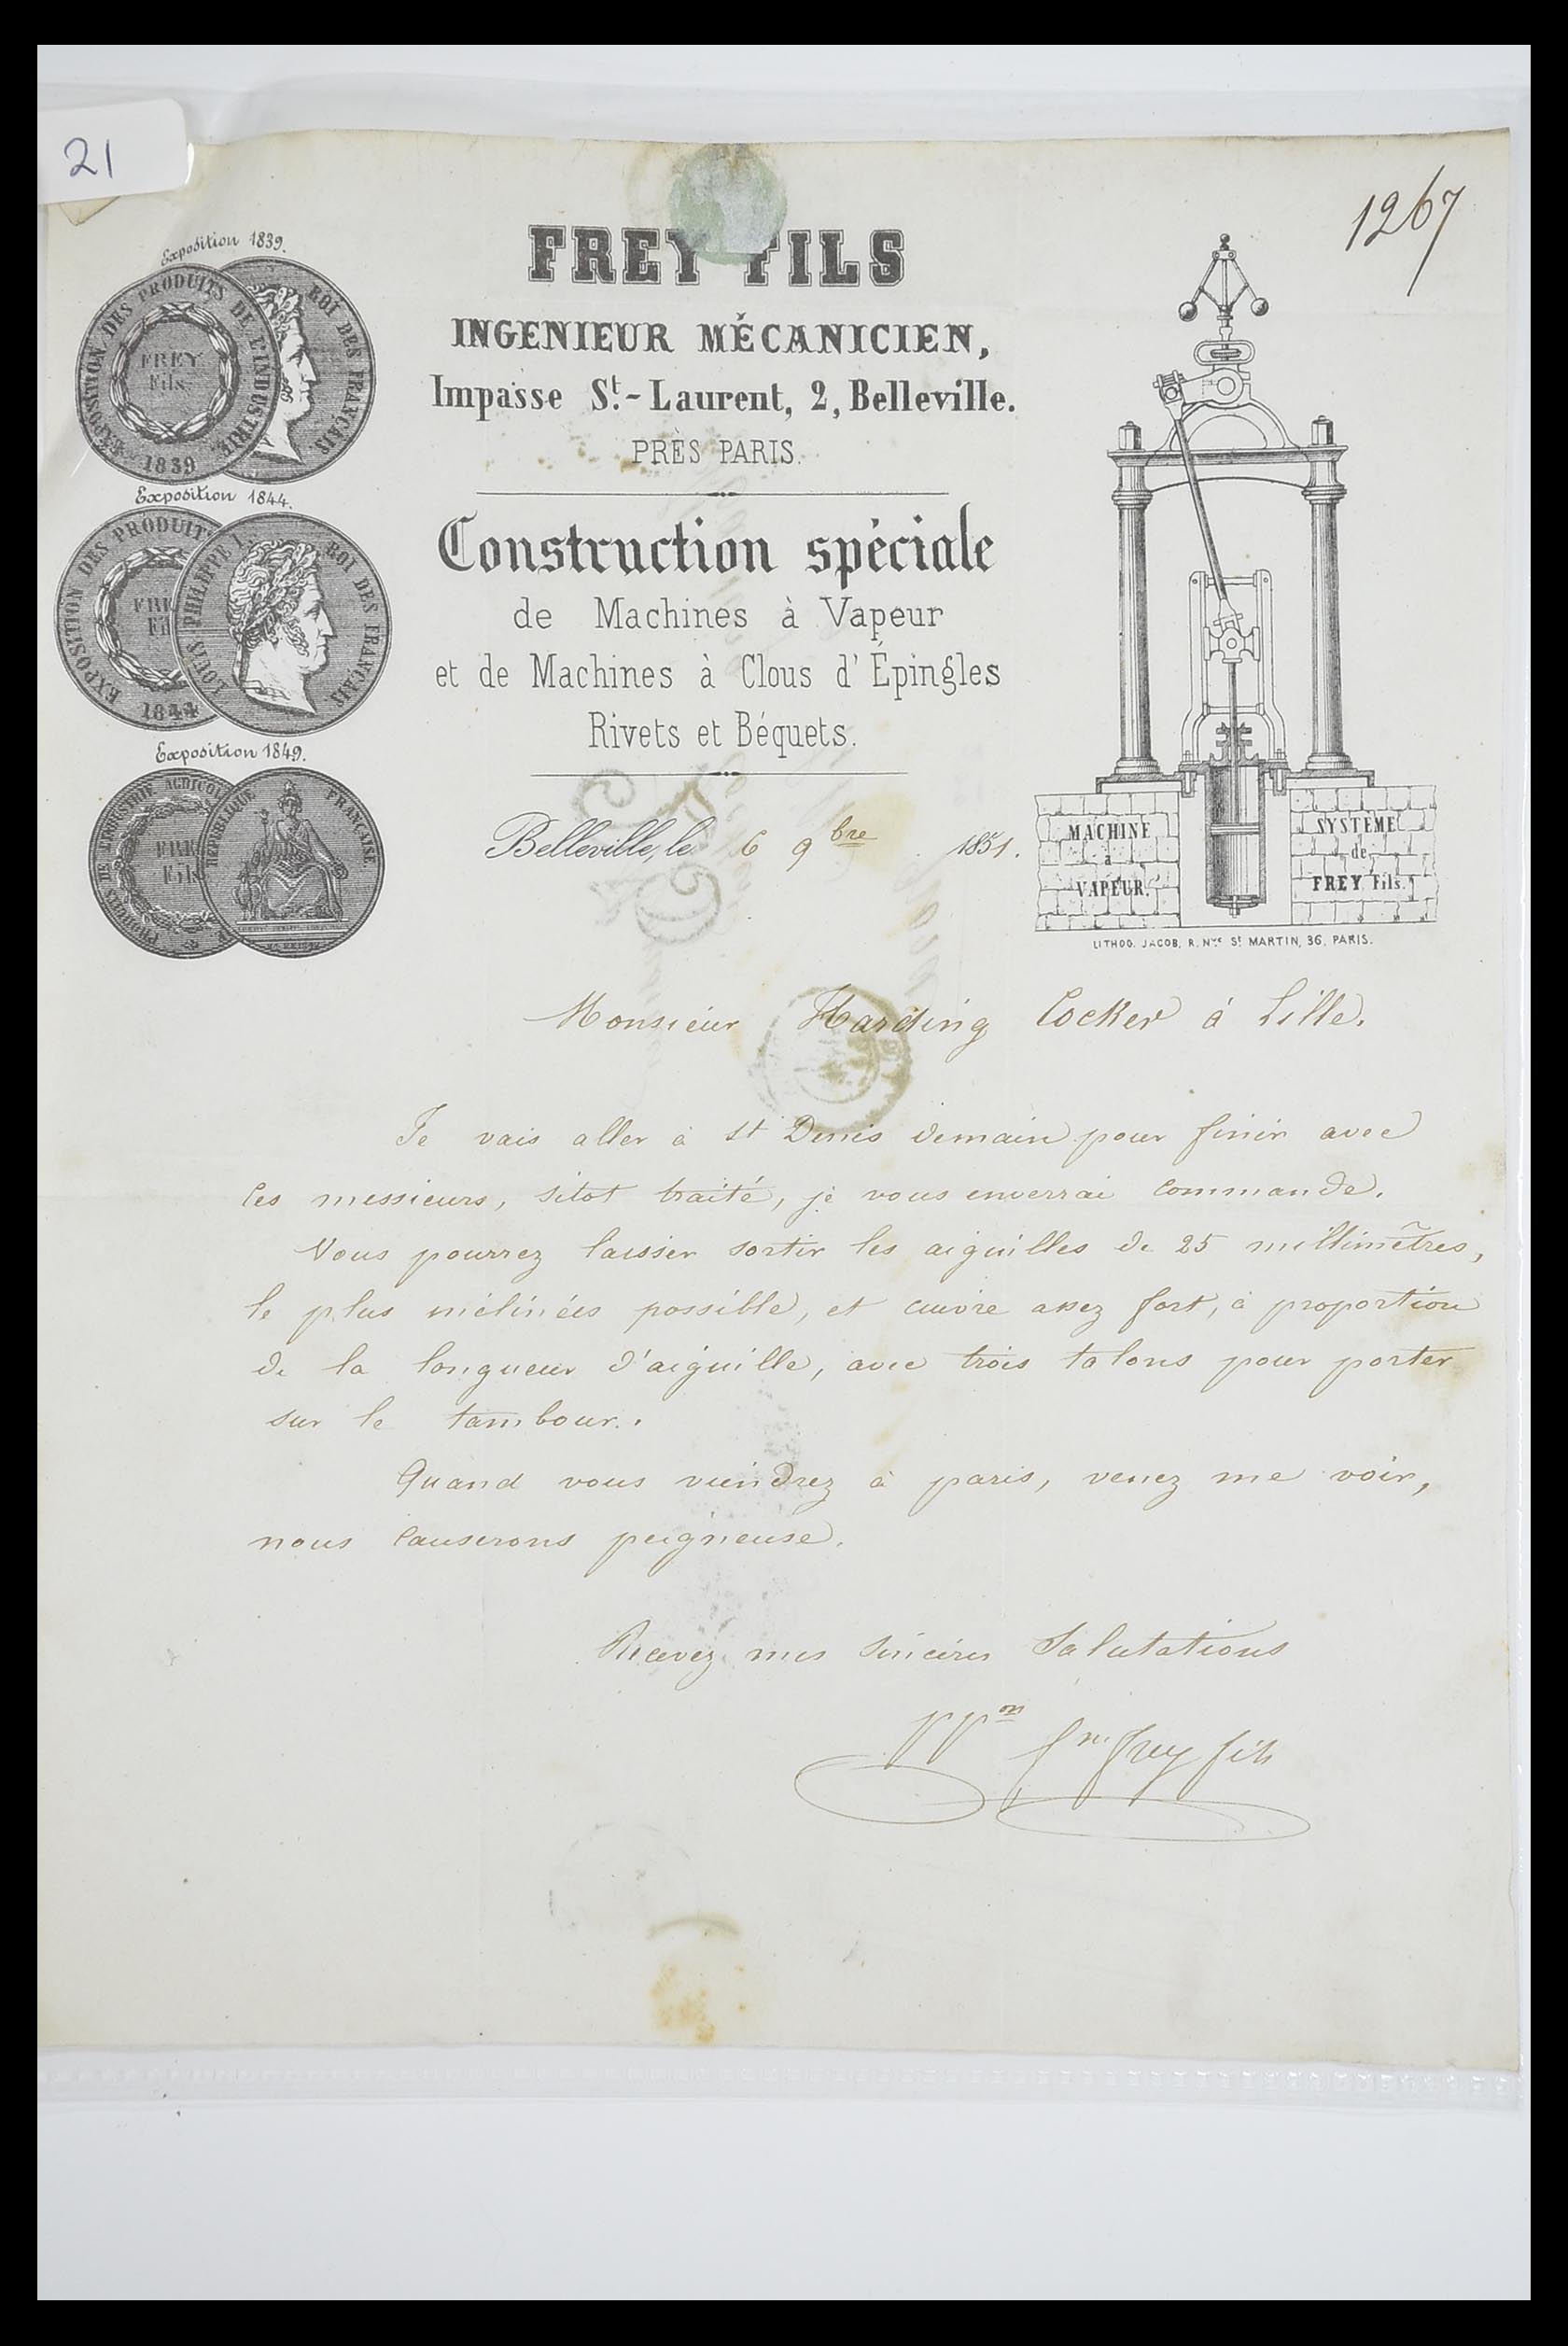 21
1267
Exposition 1839.
EXPOSITION DES PRODUITS DE L'INDUSTRIE.
FREY
Fils
1839
ROI DES FRANÇAIS
Exposition 1844.
EXPOSITION DES PRODUIT
FRE
Fil
1844
LOUIS PHILIPPE I.
ROI DES FRANÇAIS
Exposition 1849.
PRODUITS DE L'INDUSTRIE AGRICOL
FRE
Fils
RÉPUBLIQUE FRANÇAISE
FREY FILS
INGENIEUR MÉCANICIEN,
Impasse St.- Laurent, 2, Belleville.
PRÈS PARIS.
Construction spéciale
de Machines à Vapeur
et de Machines à Clous d'Épingles
Rivets et Béquets.
MACHINE
à
VAPEUR.
SYSTEME
de
FREY Fils.
LITHOG. JACOB, R. Nve St. MARTIN, 36, PARIS.
Belleville, le 6 9bre 1851.
Monsieur Harding Cocker à Lille.
Je vais aller à St Denis demain pour finir avec
ces messieurs, sitot traité, je vous enverrai commande.
Vous pourrez laisser sortir les aiguilles de 25 millimètres,
le plus inclinées possible, et cuivre assez fort, à proportion
de la longueur d'aiguille, avec trois talons pour porter
sur le tambour.
Quand vous viendrez à paris, venez me voir,
nous causerons peigneuse.
Recevez mes sincères Salutations
ppon frey fils